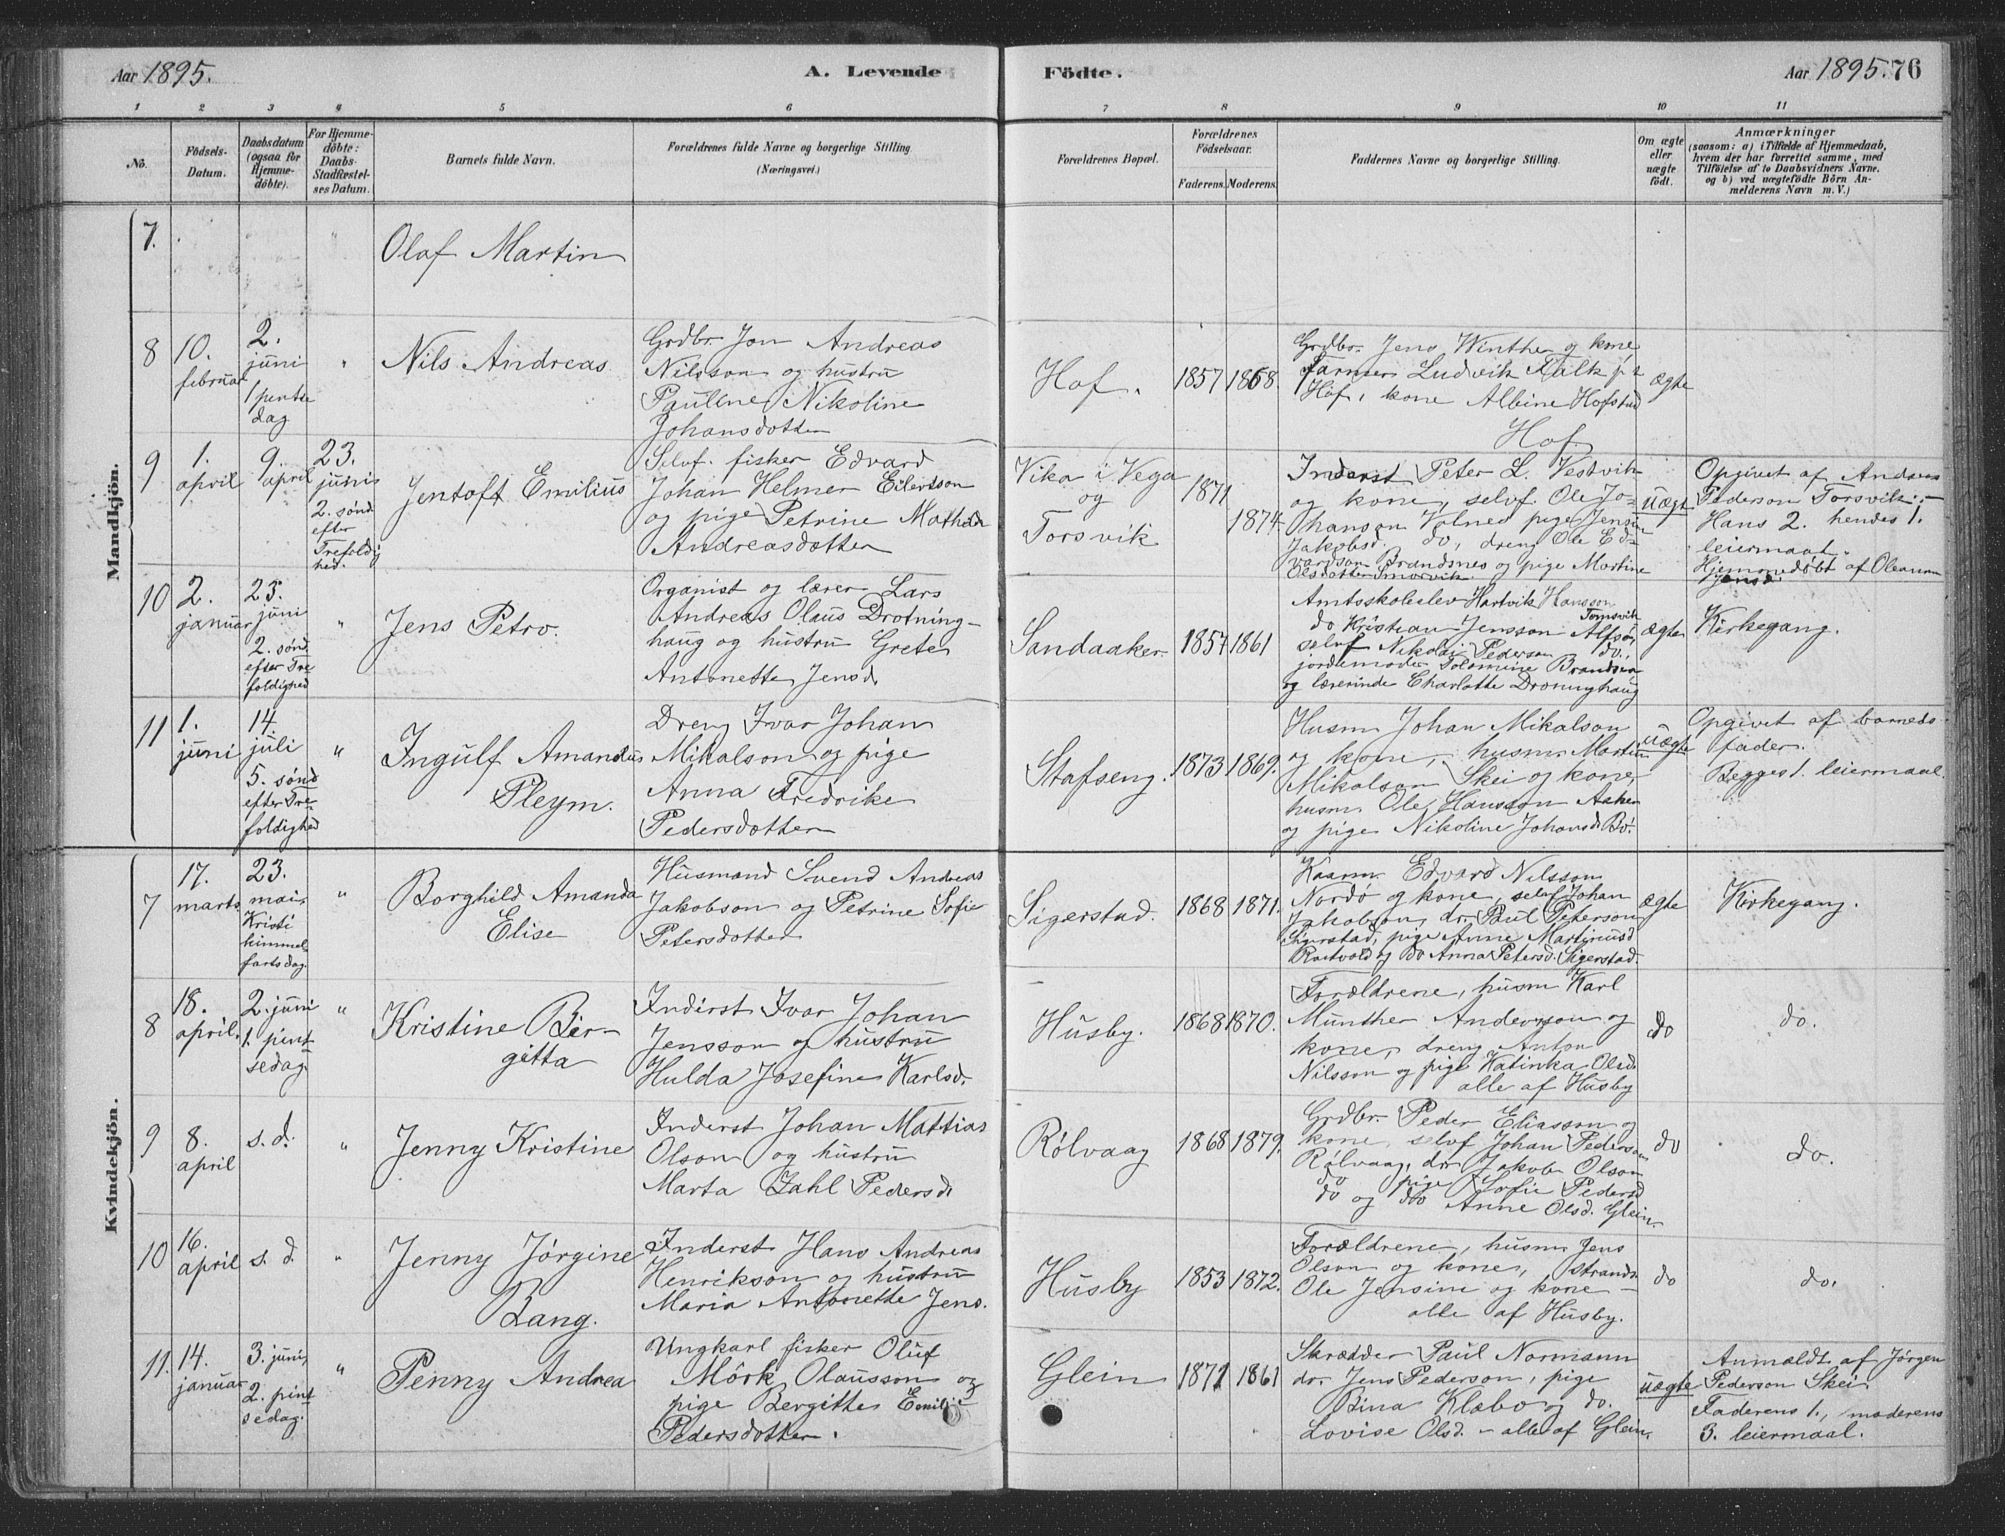 Aar 1895. A. Levende Födte. Aar 1895. 76
1 2 3 4 5 6 7 8 9 10 11
No.
Födsels-
Datum.
Daabsdatum
(ogsaa for
Hjemme-
döbte).
For Hjemme-
döbte:
Daabs-
Stadfæstel-
ses Datum.
Barnets fulde Navn.
Forældrenes fulde Navne og borgerlige Stilling
(Næringsvei.)
Forældrenes Bopæl.
Forældrenes
Födselsaar.
Faderens. Moderens.
Faddernes Navne og borgerlige Stilling.
Om ægte
eller
uægte
födt.
Anmærkninger
(saasom: a) i Tilfælde af Hjemmedaab,
hvem der har forrettet samme, med
Tilföielse af to Daabsvidners Navne,
og b) ved uægtefödte Börn An-
melderens Navn m. V.)
Mandkjön.
7.
"
Olaf Martin
8
10.
februar
2.
juni
1 pentse
dag
"
Nils Andreas
Grdbr. Jon Andreas
Nilsson og hustru
Pauline Nikoline
Johansdotter
Hof.
1857
1868.
Grdbr. Jens Winther og kone
Farmer Ludvik Falk
Hof, kone Albine Hofstad
Hof.
ægte
9
1.
april
9.
april
23.
juni
2. sønd
efter
Trefoldig
hed.
Jentoft Emilius
Selvf. fisker Edvard
Johan Helmer Eilertson
og pige Petrine Mathilde
Andreasdotter
Vika i Vega
og
Torsvik
1871
1874
Inderst Peter L. Vestvik
og kone, selvf. Ole Jo-
hanson Volned pige Jensin
Jakobsd. do, dreng Ole Ed-
vardson Brandsnes og pige Martine
Olsdotter Smorvik.
uægte
Opgivet af Andreas
Pederson Torsvik. -
Hans 2. hendes 1.
leiermaal.
Hjemmedøbt af Oleanna
Jensd.
10
2.
januar
23.
juni
2. sønd
efter Tre
foldighed
"
Jens Petro.
Organist og lærer Lars
Andreas Olaus Drotning-
haug og hustru Grete
Antonette Jensd.
Sandaaker
1857
1861
Amtsskoleelev Hartvik Hansson
Tomsvik
do Kristian Jensson Alfsø,
selvf Nikolai Pederson do.,
jordemoder Tolomine Brandsøa
og lærerinde Charlotte Droninghaug
ægte
Kirkegang.
11
1.
juni
14.
juli
5. sønd
efter Tre
foldighed
"
Ingulf Amandus
Pleym.
Dreng Ivar Johan
Mikalson og pige
Anna Fredrike
Pedersdotter
Stafseng.
1873
1869.
Husm Johan Mikalson
og kone, husm. Martin
Mikalson Skei og kone
husm. Ole Hansson Aaker
og pige Nikoline Johansd Bø.
uægte
Opgivet af barnets
fader.
Begges 1. leiermaal.
Kvindekjön.
7
17.
marts
23.
mai,
Kristi
himmel
fartsdag.
"
Borghild Amanda
Elise
Husmand Svend Andreas
Jakobson og Petrine Sofie
Petersdotter
Sigerstad.
1868
1871.
Kaarm. Edvard Nilsson
Nordø og kone, selvf Johan
Jakobson, dr. Paul Peterson
Sigerstad, pige Anne Martinusd
og do Anna Petersd. Sigerstad.
ægte
Kirkegang.
8
18.
april.
2. juni
1. pint
sedag.
"
Kristine Bir-
gitta
Inderst Ivar Johan
Jensson og hustru
Hulda Josefine Karlsd.
Husby.
1868
1870.
Forældrene, husm Karl
Munther Anderson og
kone, dreng Anton
Nilsson og pige Katinka Olsd
alle af Husby
do
do.
9
8.
april
s. d.
"
Jenny Kristine
Inderst Johan Mattias
Olson og hustru
Marta Zahl Pedersd
Rølvaag
1868
1879.
Grdbr. Peder Eliasson og
kone, selvf Johan Pederson
Rølvaag, dr. Jakob Olson
do pige Sofie Pedersd
do og do Anne Olsd. Glein.
do
do.
10
16.
april
s. d.
"
Jenny Jørgine
Bang.
Inderst Hans Andreas
Henrikson og hustru
Maria Antonette Jens.
Husby
1853
1872.
Forældrene, husm Jens
Olson og kone, strands.
Ole Jensine og kone -
alle af Husby.
do
do.
11.
14.
januar
3. juni,
2. pint
sedag.
"
Penny Andrea
Ungkarl fisker Oluf
Mörk Olausson og
pige Bergitte Emilie
Pedersdotter.
Glein
1871
1861
Skrædder Paul Normann
dr. Jens Pederson, pige
Bina Klæbo og do.
Lovise Olsd. - alle af Glein.
uægte
Anmeldt af Jørgen
Pederson Skei.
Faderens 1., moderens
3. leiermaal.